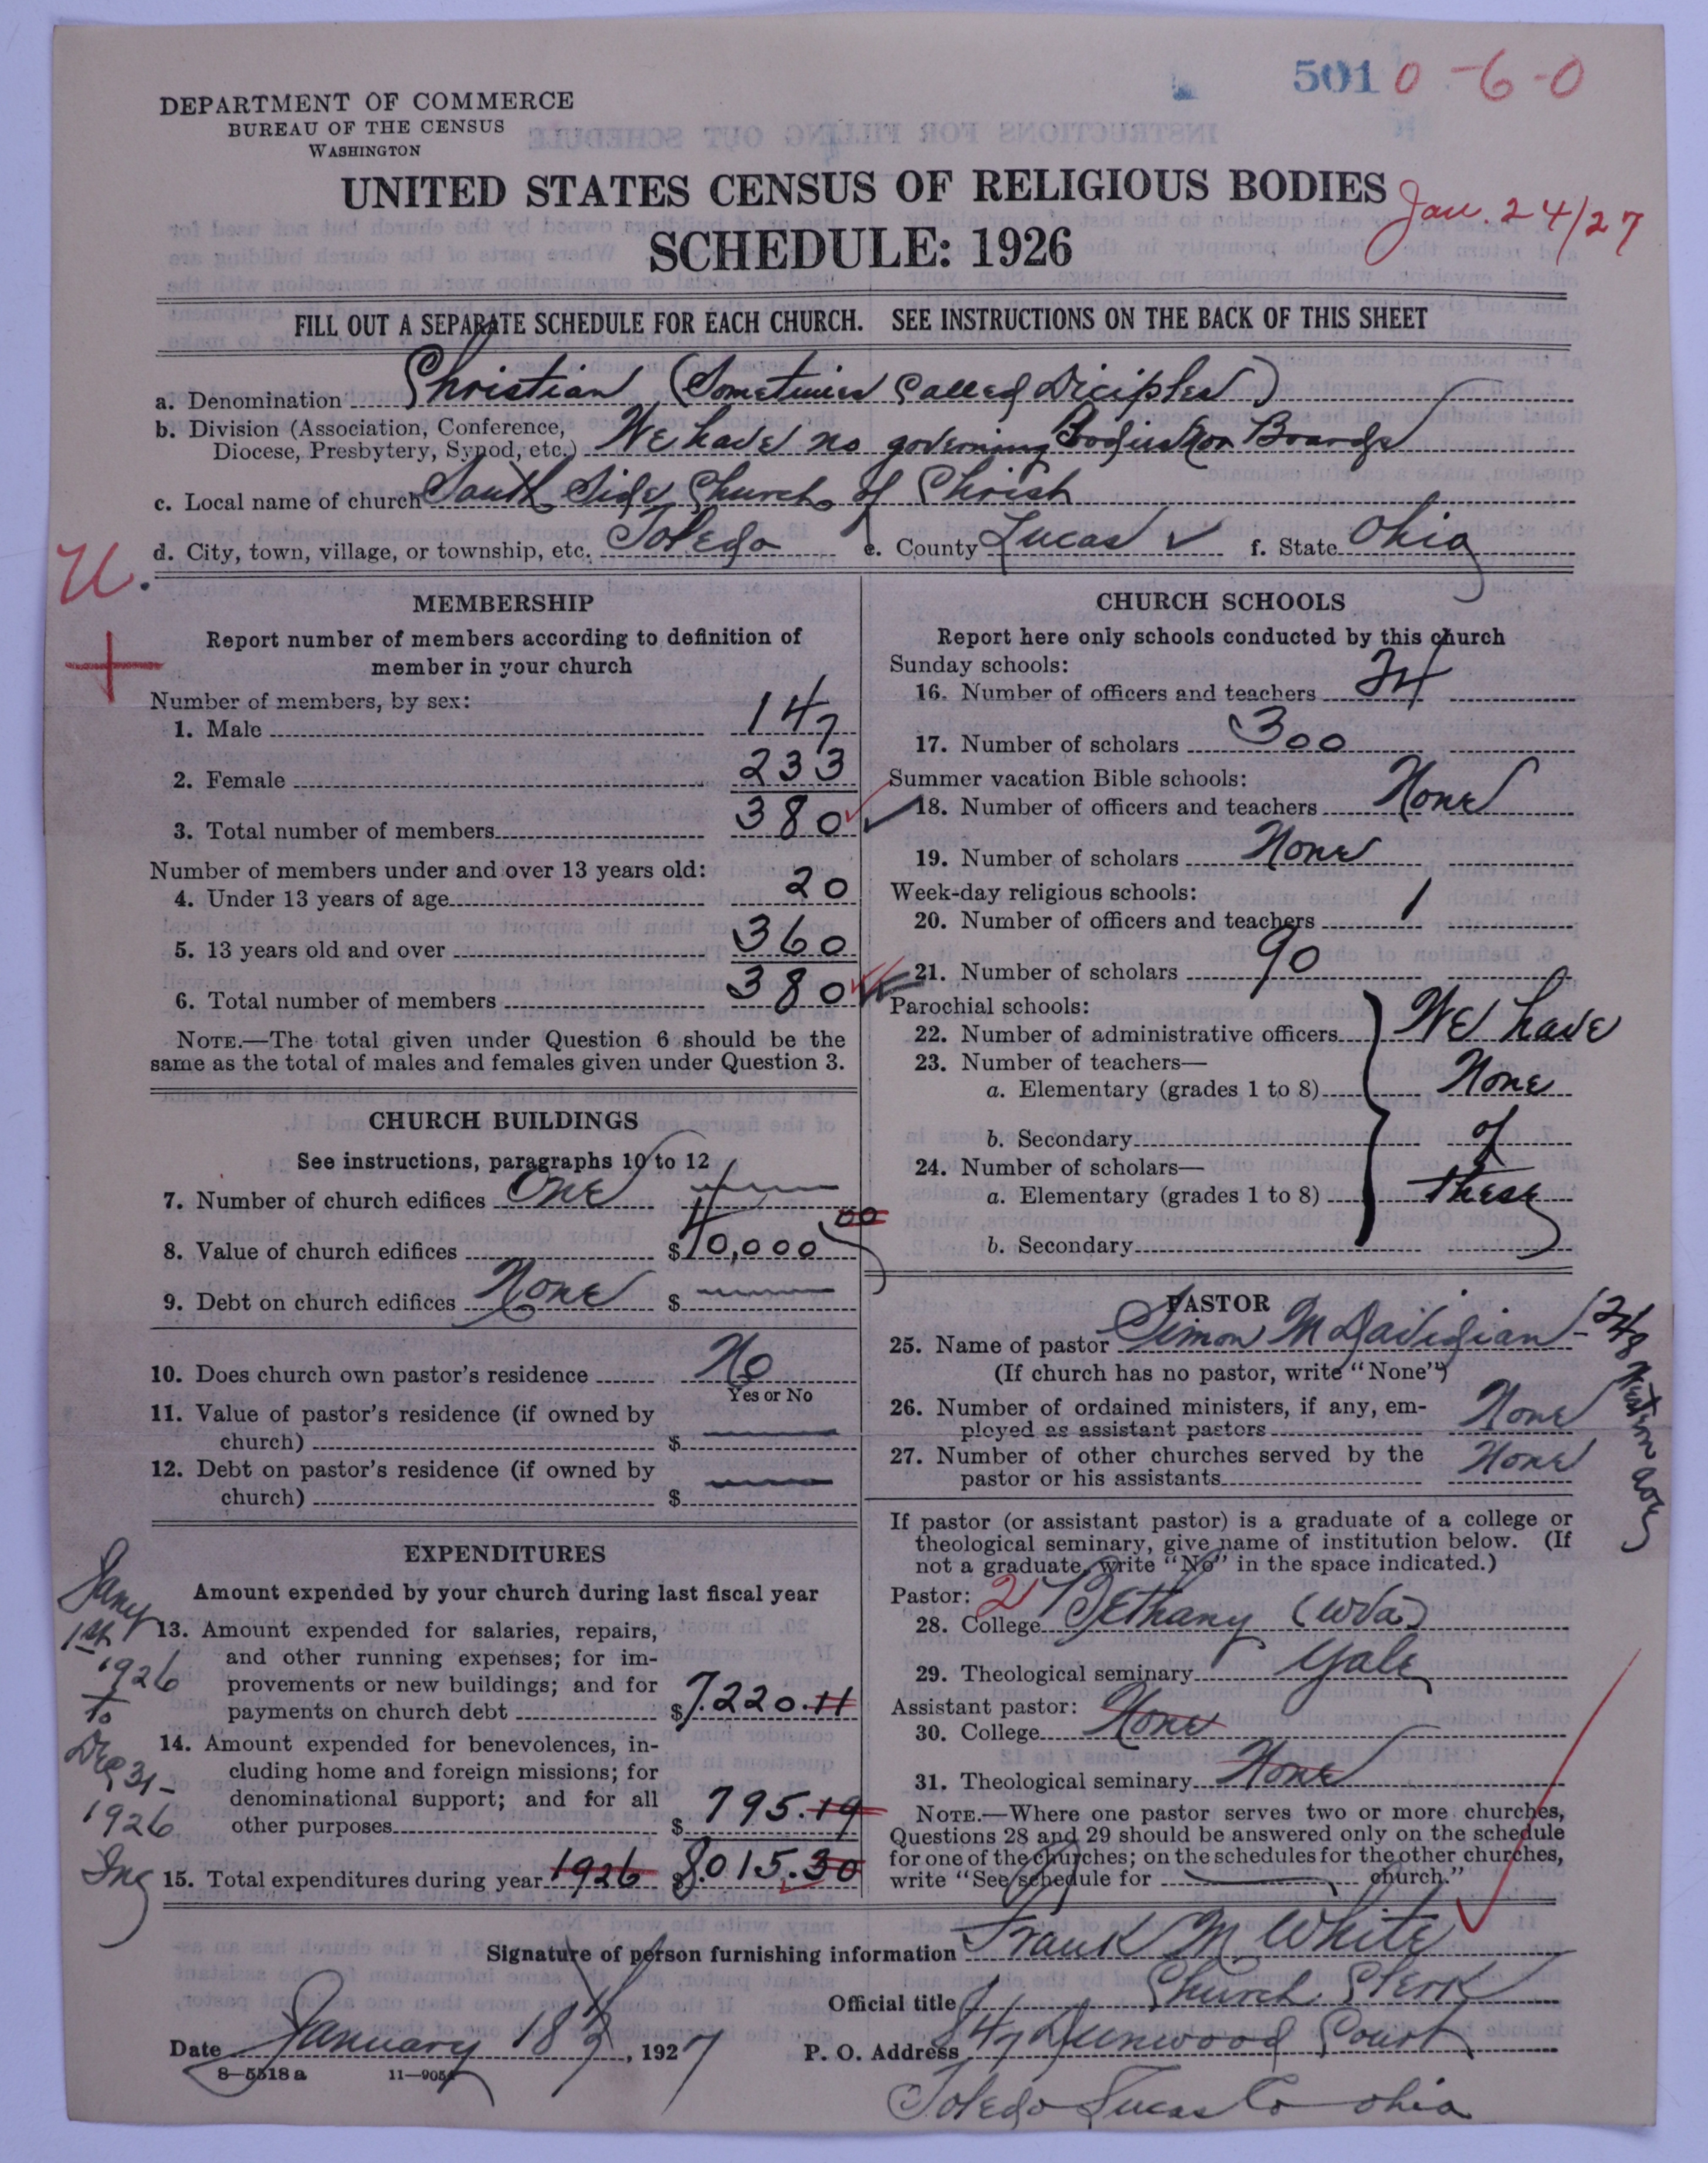 5010-6-0
DEPARTMENT OF COMMERCE
BUREAU OF THE CENSUS
WASHINGTON
UNITED STATES CENSUS OF RELIGIOUS BODIES
Jan. 24/27
SCHEDULE: 1926
FILL OUT A SEPARATE SCHEDULE FOR EACH CHURCH. SEE INSTRUCTIONS ON THE BACK OF THIS SHEET
a. Denomination Christian (Sometimes Called Diciples)
b. Division (Association, Conference,
Diocese, Presbytery, Synod, etc.) We have no governing Bodies Nor Boards
c. Local name of church South Side Church of Christ
d. City, town, village, or township, etc. Toledo e. County Lucas ✓ f. State Ohio
U.
+
MEMBERSHIP
Report number of members according to definition of
member in your church
Number of members, by sex:
1. Male 147
2. Female 233
3. Total number of members 380
Number of members under and over 13 years old:
4. Under 13 years of age 20
5. 13 years old and over 360
6. Total number of members 380
NOTE.—The total given under Question 6 should be the
same as the total of males and females given under Question 3.
CHURCH BUILDINGS
See instructions, paragraphs 10 to 12
7. Number of church edifices One
8. Value of church edifices $ 0,000 00
9. Debt on church edifices None $
10. Does church own pastor's residence No
Yes or No
11. Value of pastor's residence (if owned by
church) $
12. Debt on pastor's residence (if owned by
church) $
EXPENDITURES
Amount expended by your church during last fiscal year
Jany 1st 1926 to Dec 31- 1926 Inc
13. Amount expended for salaries, repairs,
and other running expenses; for im-
provements or new buildings; and for
payments on church debt $7.220.11
14. Amount expended for benevolences, in-
cluding home and foreign missions; for
denominational support; and for all
other purposes $ 795.19
15. Total expenditures during year 1926 8.015.30
CHURCH SCHOOLS
Report here only schools conducted by this church
Sunday schools:
16. Number of officers and teachers 24
17. Number of scholars 300
Summer vacation Bible schools:
18. Number of officers and teachers None
19. Number of scholars None
Week-day religious schools:
20. Number of officers and teachers 1
21. Number of scholars 90
Parochial schools:
22. Number of administrative officers We have
23. Number of teachers—
a. Elementary (grades 1 to 8) None
b. Secondary of
24. Number of scholars—
a. Elementary (grades 1 to 8) these
b. Secondary
PASTOR
25. Name of pastor Simon M Davidian -
(If church has no pastor, write "None")
26. Number of ordained ministers, if any, em-
ployed as assistant pastors None
27. Number of other churches served by the
pastor or his assistants None
If pastor (or assistant pastor) is a graduate of a college or
theological seminary, give name of institution below. (If
not a graduate, write "No" in the space indicated.)
Pastor: 2
28. College Bethany (W Va)
29. Theological seminary Yale
Assistant pastor:
30. College None
31. Theological seminary None
NOTE.—Where one pastor serves two or more churches,
Questions 28 and 29 should be answered only on the schedule
for one of the churches; on the schedules for the other churches,
write "See schedule for church."
Signature of person furnishing information Frank M White
Official title Church Clerk
Date January 18th, 1927
P. O. Address 847 Dunwood Court
8—5518 a
Toledo Lucas Co Ohio